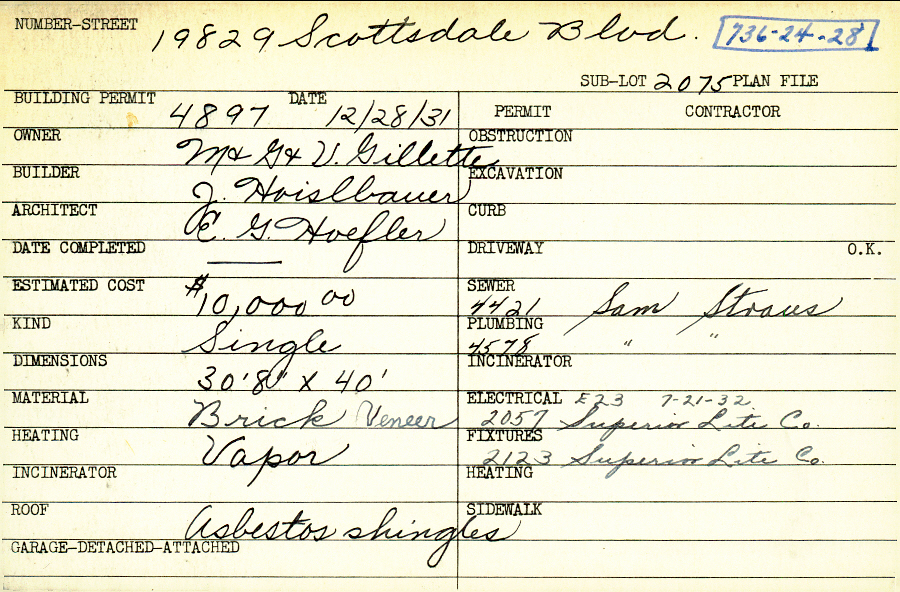 NUMBER-STREET 19829 Scottsdale Blvd. 736-24-28
SUB-LOT 2075 PLAN FILE
BUILDING PERMIT 4897 DATE 12/28/31 PERMIT CONTRACTOR
OWNER M & G & V. Gillette OBSTRUCTION
BUILDER J. Hoislbauer EXCAVATION
ARCHITECT E. G. Hoefler CURB
DATE COMPLETED —— DRIVEWAY O.K.
ESTIMATED COST $10,000 00 SEWER 4421 Sam Straus
KIND Single PLUMBING 4578 " "
DIMENSIONS 30'8" X 40' INCINERATOR
MATERIAL Brick Veneer ELECTRICAL E23 7-21-32
2057 Superior Lite Co.
HEATING Vapor FIXTURES 2123 Superior Lite Co.
INCINERATOR HEATING
ROOF Asbestos shingles SIDEWALK
GARAGE-DETACHED-ATTACHED